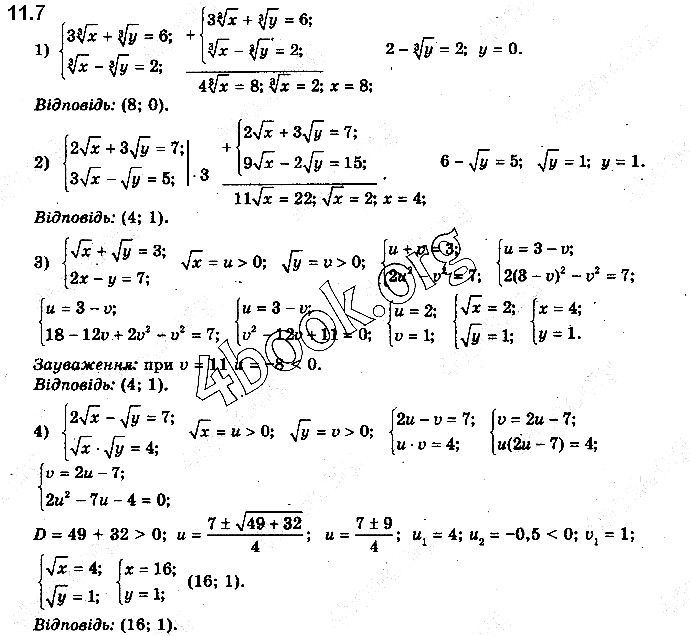 11.7
1) {3∛x + ∛y = 6; ∛x − ∛y = 2; + {3∛x + ∛y = 6; ∛x − ∛y = 2; 4∛x = 8; ∛x = 2; x = 8; 2 − ∛y = 2; y = 0.
Відповідь: (8; 0).
2) {2√x + 3√y = 7; 3√x − √y = 5; | · 3 + {2√x + 3√y = 7; 9√x − 2√y = 15; 11√x = 22; √x = 2; x = 4; . 6 − √y = 5; √y = 1; y = 1.
Відповідь: (4; 1).
3) {√x + √y = 3; 2x − y = 7; √x = u > 0; √y = v > 0; {u + v = 3; 2u² − v² = 7; {u = 3 − v; 2(3 − v)² − v² = 7;
{u = 3 − v; 18 − 12v + 2v² − v² = 7; {u = 3 − v; v² − 12v + 11 = 0; {u = 2; v = 1; {√x = 2; √y = 1; {x = 4; y = 1.
Зауваження: при v = 11 u = −8 < 0.
Відповідь: (4; 1).
4) {2√x − √y = 7; √x · √y = 4; √x = u > 0; √y = v > 0; {2u − v = 7; u · v = 4; {v = 2u − 7; u(2u − 7) = 4;
{v = 2u − 7; 2u² − 7u − 4 = 0;
D = 49 + 32 > 0; u = (7 ± √(49 + 32))/4; u = (7 ± 9)/4; u₁ = 4; u₂ = −0,5 < 0; v₁ = 1;
{√x = 4; √y = 1; {x = 16; y = 1; (16; 1).
Відповідь: (16; 1).
4book.org